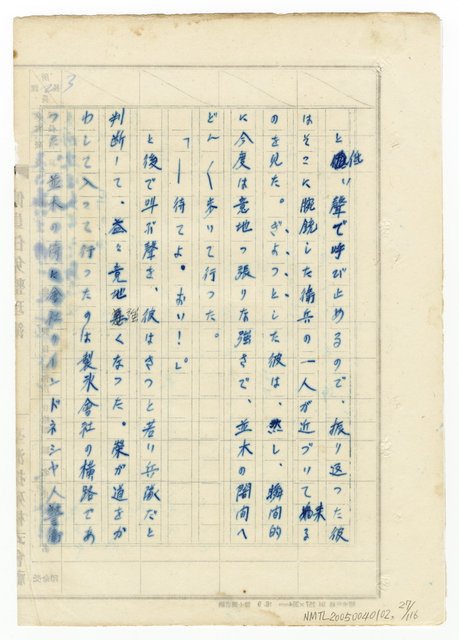 と低い聲で呼び止めるので、振り返つた彼
はそこに腕銃した衛兵の一人が近づいて来る
のを見た。ぎよつとした彼は、然し、瞬間的
に今度は意地つ張りな強さで、並木の闇向へ
どん〱歩いて行つた。
「―待てよ。おい！」。
と後で叫ぶ聲を、彼はきつと若い兵隊だと
判断して、益々意地強くなつた。榮が道をか
わして入つて行つたのは製氷會社の横路であ
つた。並木の
インドネシヤ人警備
3
NMTL20050040102, 27/116